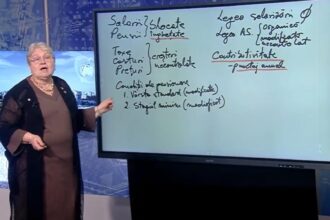 Salarii
Pensii
blocate
înghețate
Taxe
Costuri
Prețuri
creșteri
necontrolate
Condiții de pensionare
1. Vârsta standard (modificată)
2. Stagiul minim (modificat)
Legea Salarizării
Legea AS.
organică
modificată
Contributivitate